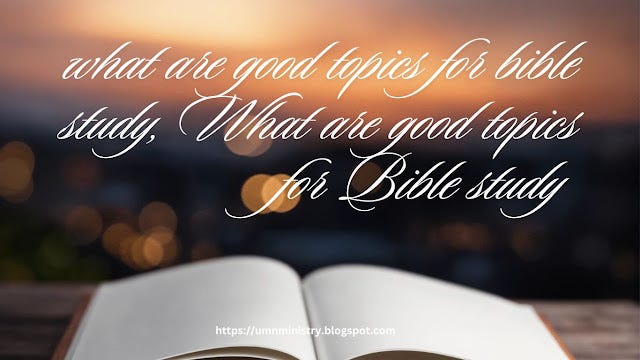 what are good topics for bible
study, What are good topics
for Bible study
https://umnministry.blogspot.com